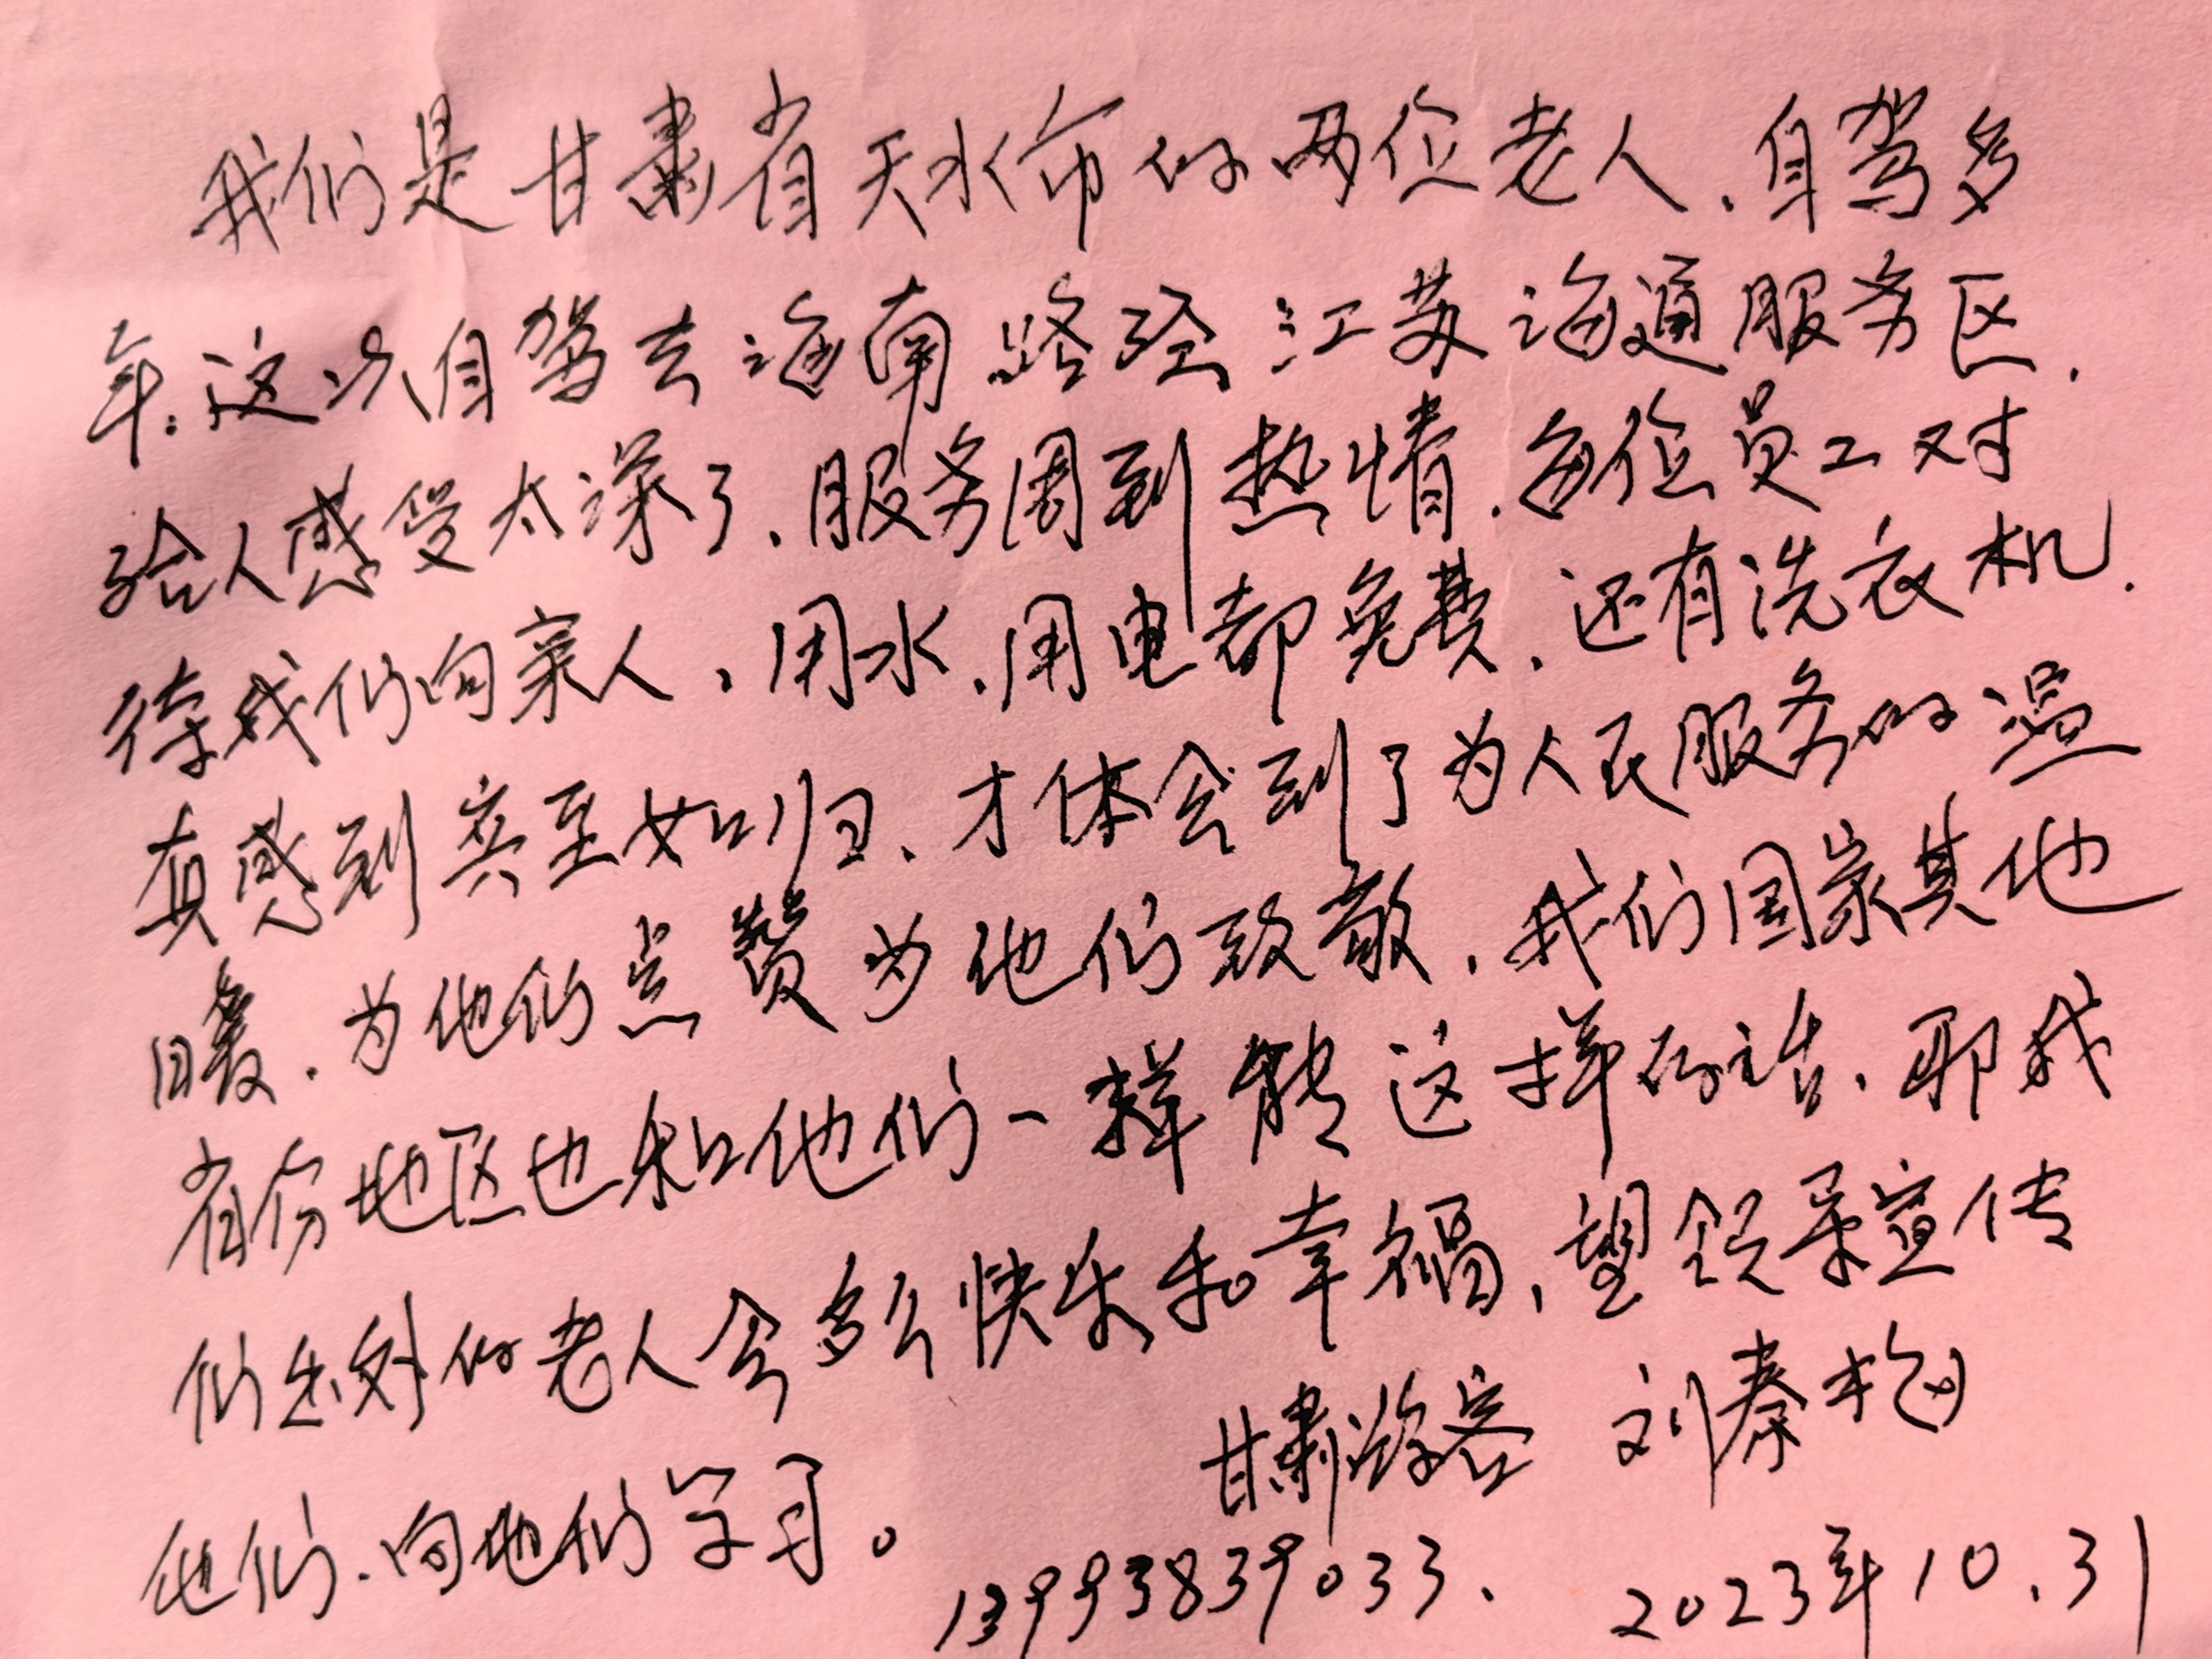 我们是甘肃省天水市的两位老人、自驾多
年.这次自驾去海南路经江苏沟通服务区.
给人感受太深了、服务周到热情.每位员工对
待我们向亲人、用水.用电都免费、还有洗衣机.
真感到宾至如归、才体会到了为人民服务的温
暖.为他们点赞为他们致敬.我们国家其他
省份地区也和他们一样能这样的话、那我
们出外的老人会多么快乐和幸福、望领导宣传
他们.向他们学习。
甘肃游客 刘秦
13993839033. 2023年10.31